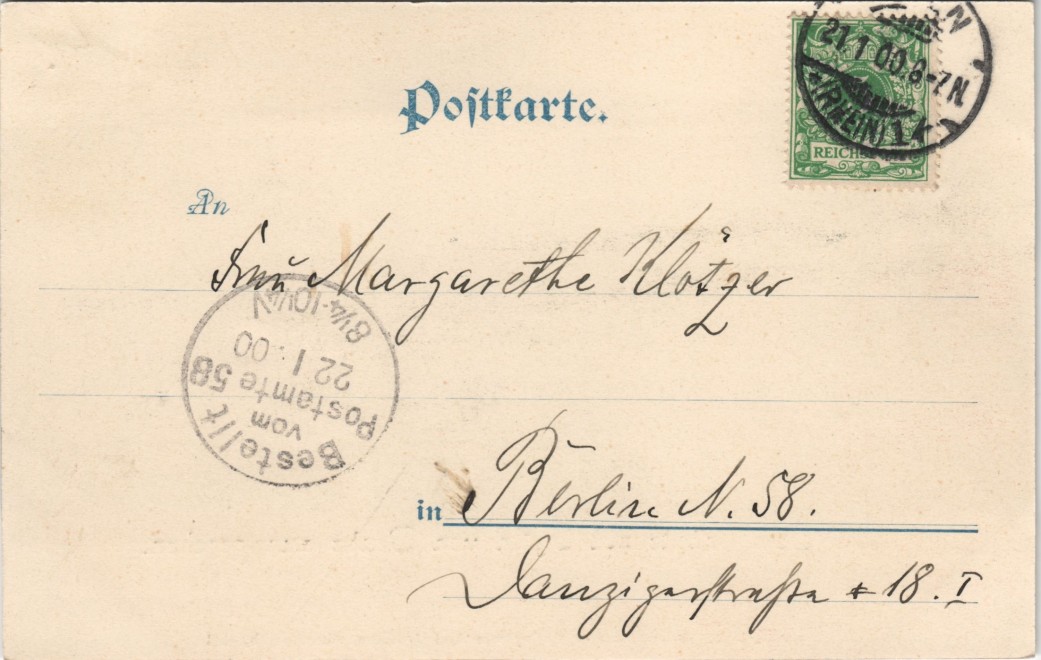 Postkarte.
21.1.00.6-7N.
(RHEIN) 1
REICHS
An
Frau Margarethe Klötzer
8¼-10¼V
22 1.00
Postamte 58
vom
Bestellt
in Berlin N. 58.
Danzigerstraße 18. I